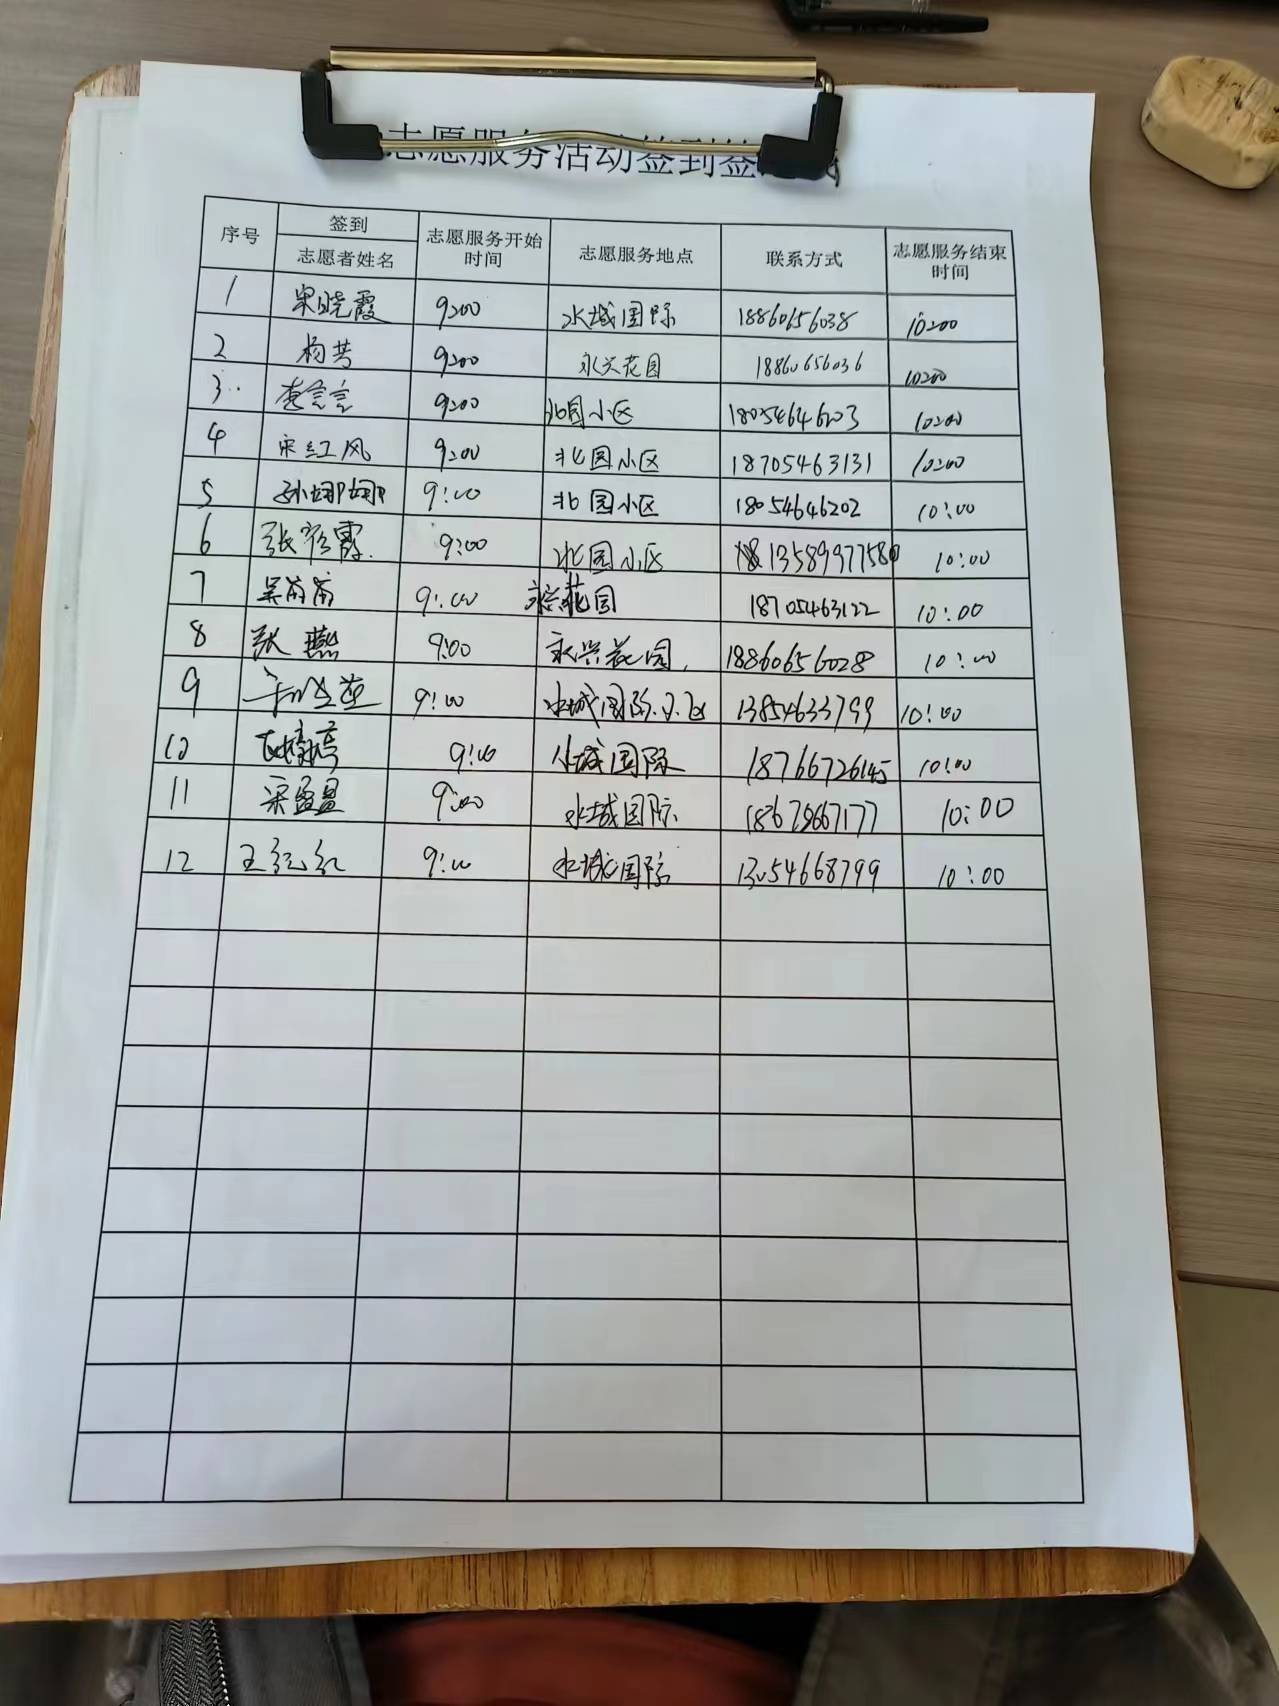 志愿服务活动签到签
序号 签到 志愿服务开始时间 志愿服务地点 联系方式 志愿服务结束时间
志愿者姓名
1 宋晓霞 9:00 水城国际 18860656038 10:00
2 杨芳 9:00 永兴花园 18860656036 10:00
3 李言言 9:00 北园小区 18054646203 10:00
4 宋红风 9:00 北园小区 18705463131 10:00
5 孙娜娜 9:00 北园小区 18054646202 10:00
6 张彩霞 9:00 北园小区 13589977580 10:00
7 9:00 永兴花园 18705463122 10:00
8 张燕 9:00 永兴花园 18860656028 10:00
9 9:00 水城国际小区 13854633799 10:00
10 9:00 水城国际 18766726145 10:00
11 宋盈盈 9:00 水城国际 18678667177 10:00
12 王红红 9:00 水城国际 13054668799 10:00